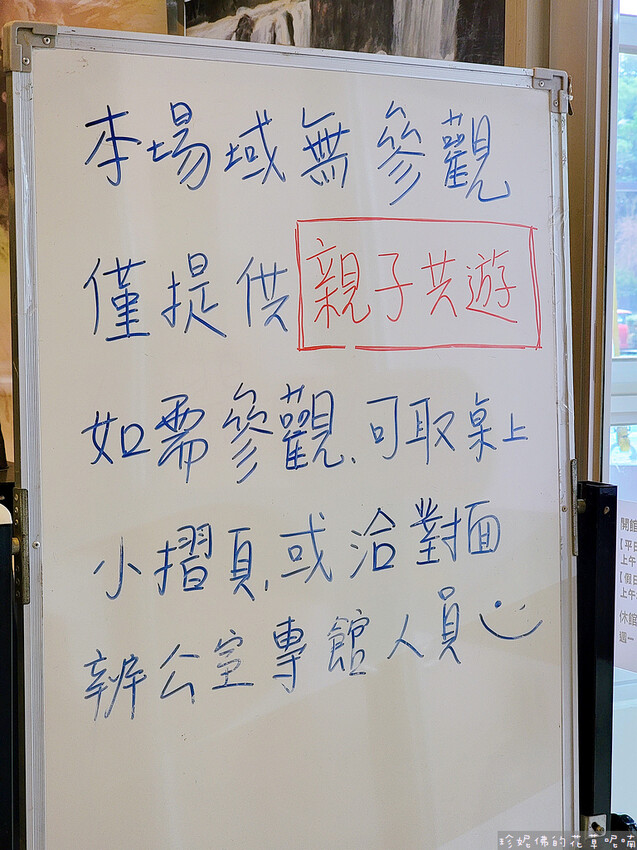 本場域無參觀
僅提供親子共遊
如需參觀、可取桌上
小摺頁,或洽對面
辦公室專館人員
開館
【平日
上午
【假日
上午
休館
週一
珍妮佛的花草呢喃